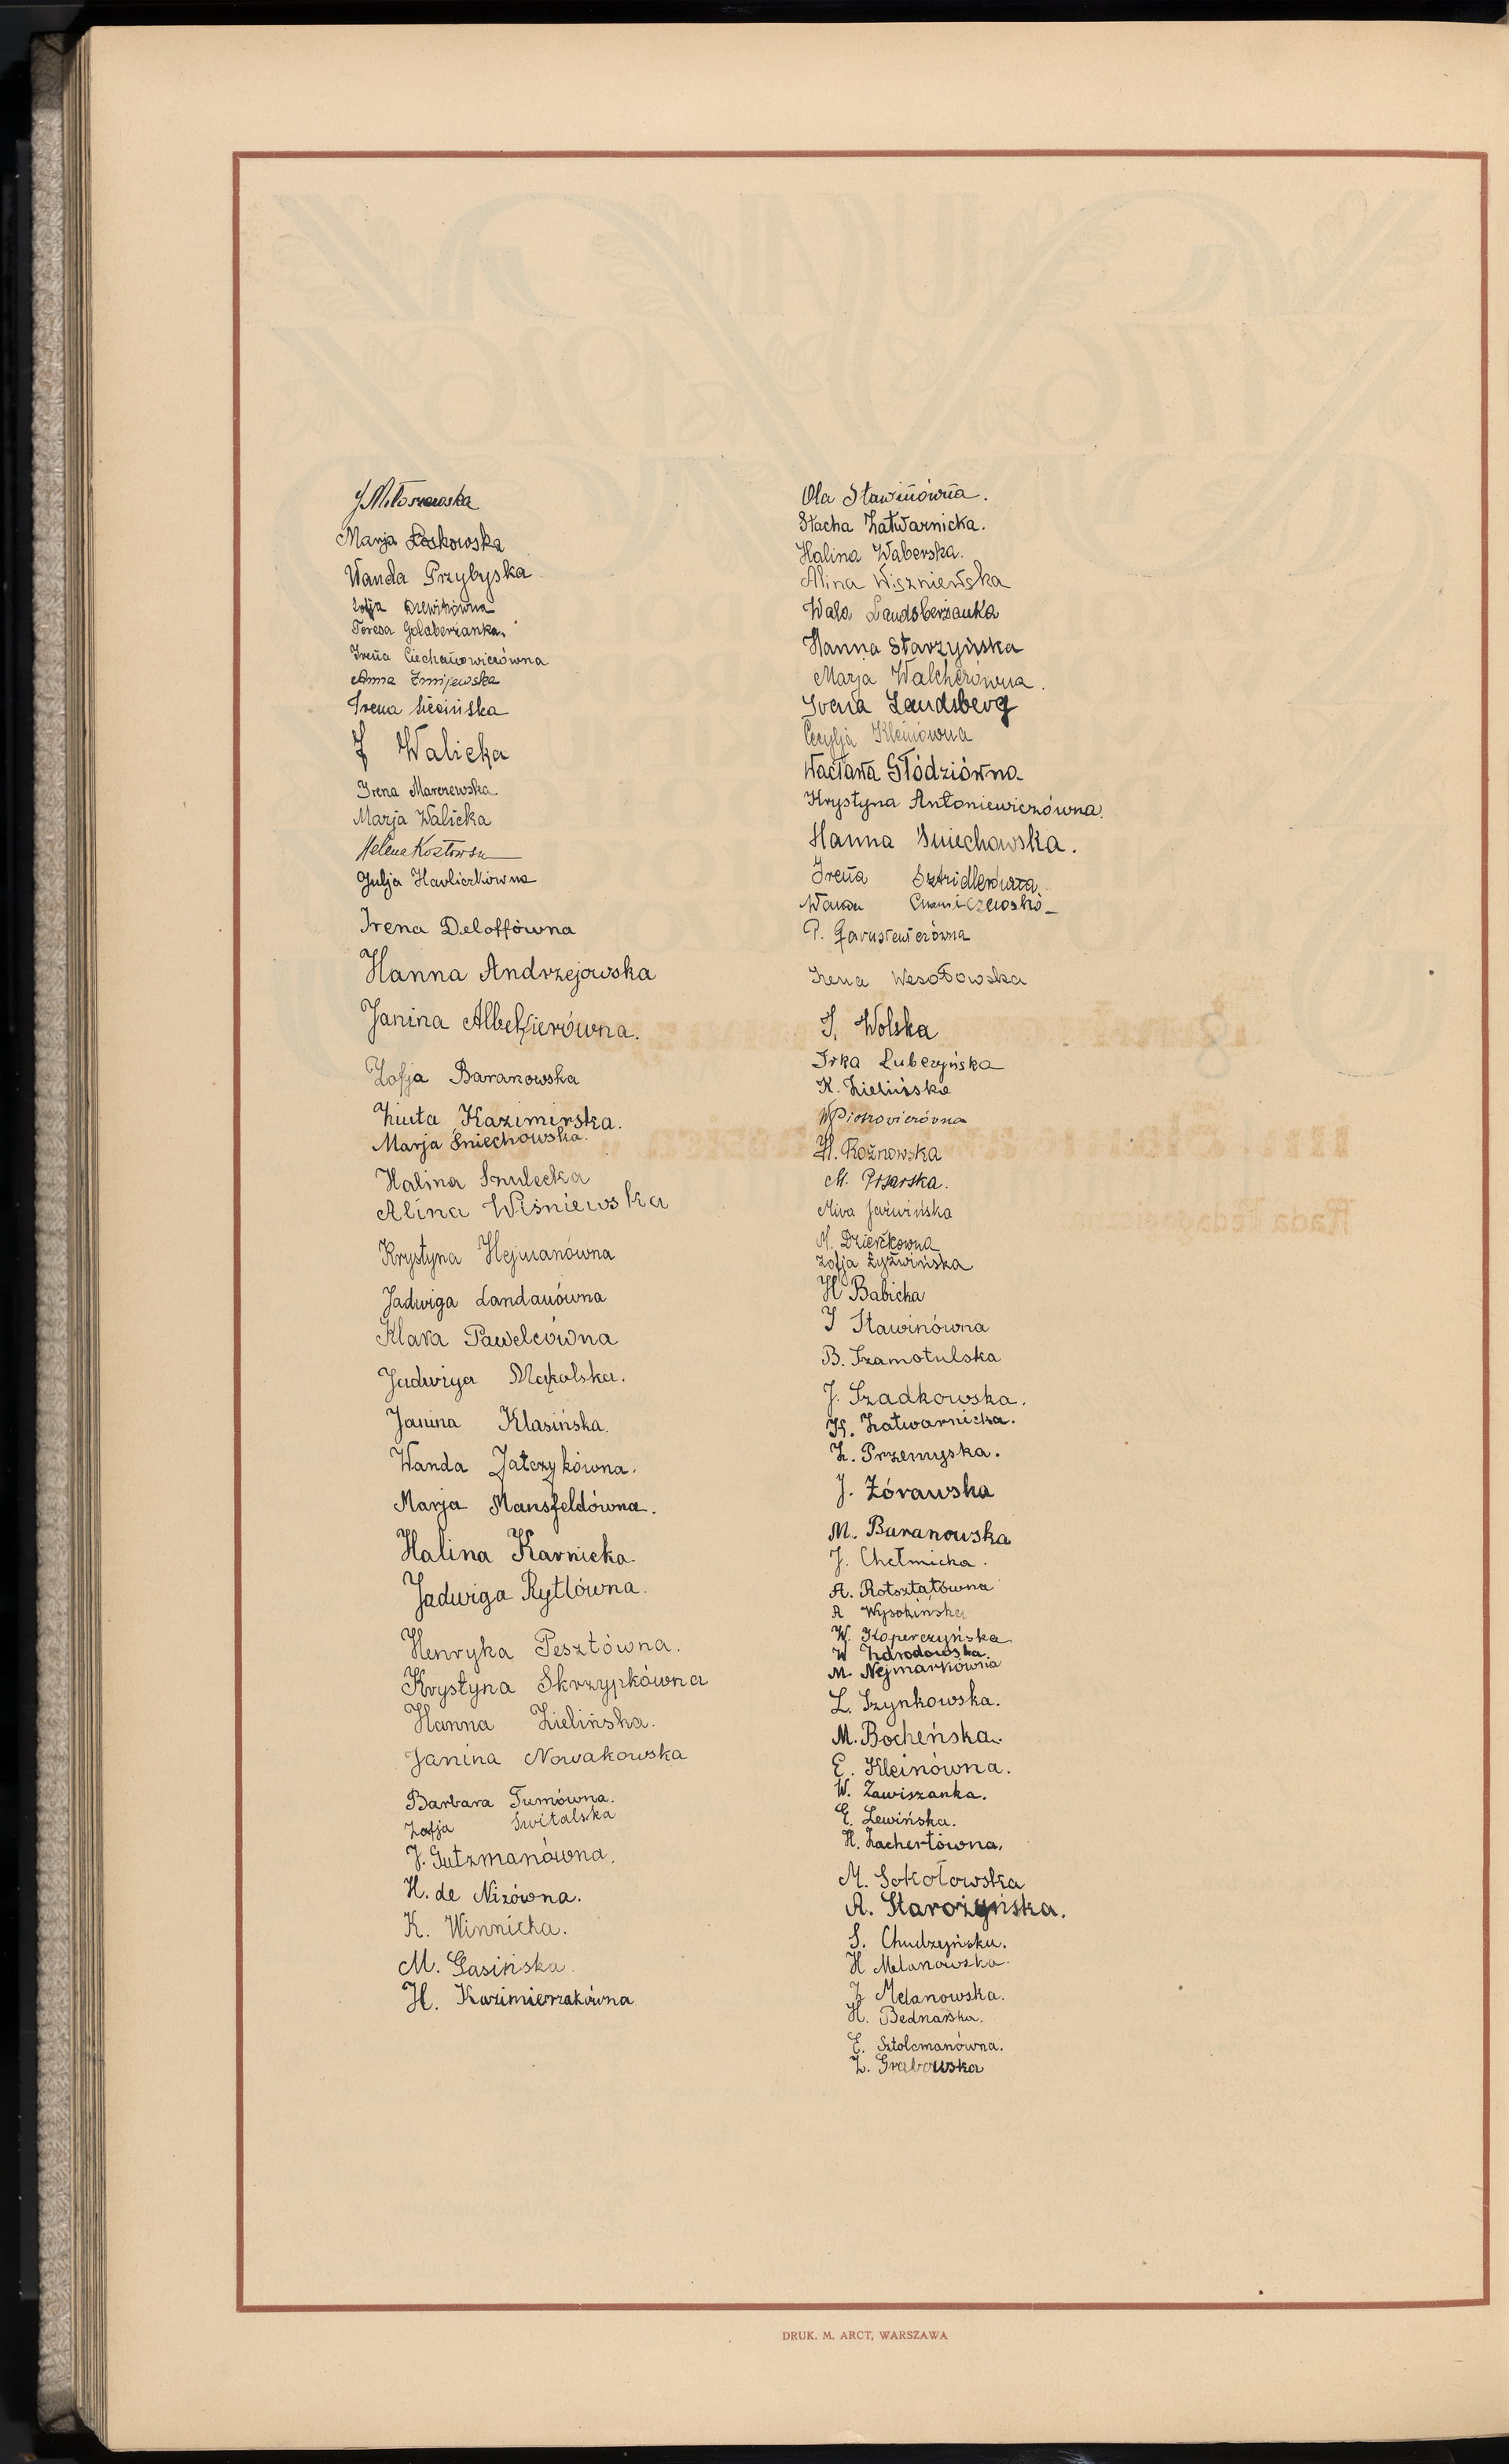 J Miłoszewska
Marja Laskowska
Wanda Przybyska
Zofja Drewitówna
Teresa Goldberżanka.
Irena Ciechanowiczówna
Anna Żmijewska
Irena
J Walicka
Irena Marczewska
Marja Walicka
Helena
Julja Havliczkówna
Irena Deloffówna
Hanna Andrzejowska
Janina
Zofja Baranowska
Ziuta Kazimirska.
Marja Śniechowska.
Halina Szulecka
Alina Wiśniewska
Krystyna Hejmanówna
Jadwiga Landauówna
Klara Pawelcówna
Jadwiga Makolska.
Janina Klasińska.
Wanda Jatczykówna.
Marja Mansfeldówna.
Halina Karnicka.
Jadwiga Rytlówna.
Henryka Pesztówna.
Krystyna Skrzypkówna
Hanna Zielińska.
Janina Nowakowska
Barbara Tumówna.
Zofja Świtalska
J. Gutzmanówna.
H. de Nizówna.
K. Winnicka.
M. Gasińska.
H. Kazimierzakówna
Ola Sławinówna.
Stacha Zatwarnicka.
Halina Waberska.
Alina Wiszniewska
Wala Landsberżanka
Hanna Starzyńska
Marja Walcherówna.
Irena Landsberg
Cecylja Kleinówna
Wacława Głódziówna
Krystyna Antoniewiczówna.
Hanna Śniechowska.
Irena
P.
Irena Wesołowska
J. Wolska
Irka Lubczyńska
K. Zielińska
W Piotrowiczówna
H. Rożnowska
M. Pisarska.
Mira
M. Dzierżkówna
Zofja Żyźwińska
H Babicka
J Sławinówna
B. Szamotulska
J. Szadkowska.
K. Zatwarnicka.
Z. Przemyska.
J. Żórawska
M. Baranowska
J. Chełmicka.
A. Rotsztatówna
A Wysokińska
W. Koperczyńska
W Zdrodowska
M. Nejmarkówna
L. Szynkowska.
M. Bocheńska.
E. Kleinówna.
W. Zawiszanka.
E. Lewińska.
H. Zachertówna.
M. Sokołowska
A. Starożyńska.
S. Chudzyńska.
H Melanowska.
Z Melanowska.
H. Bednarska.
E. Sztolcmanówna.
Z. Grabowska
DRUK. M. ARCT, WARSZAWA